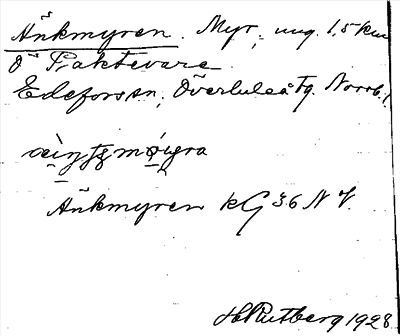 Änkmyren. Myr, ung. 1,5 km
Ö Praktevare
Edefors sn, Överluleå Tg. Norrb. l
Änkmyren kG 36 N V.
H Rutberg 1928